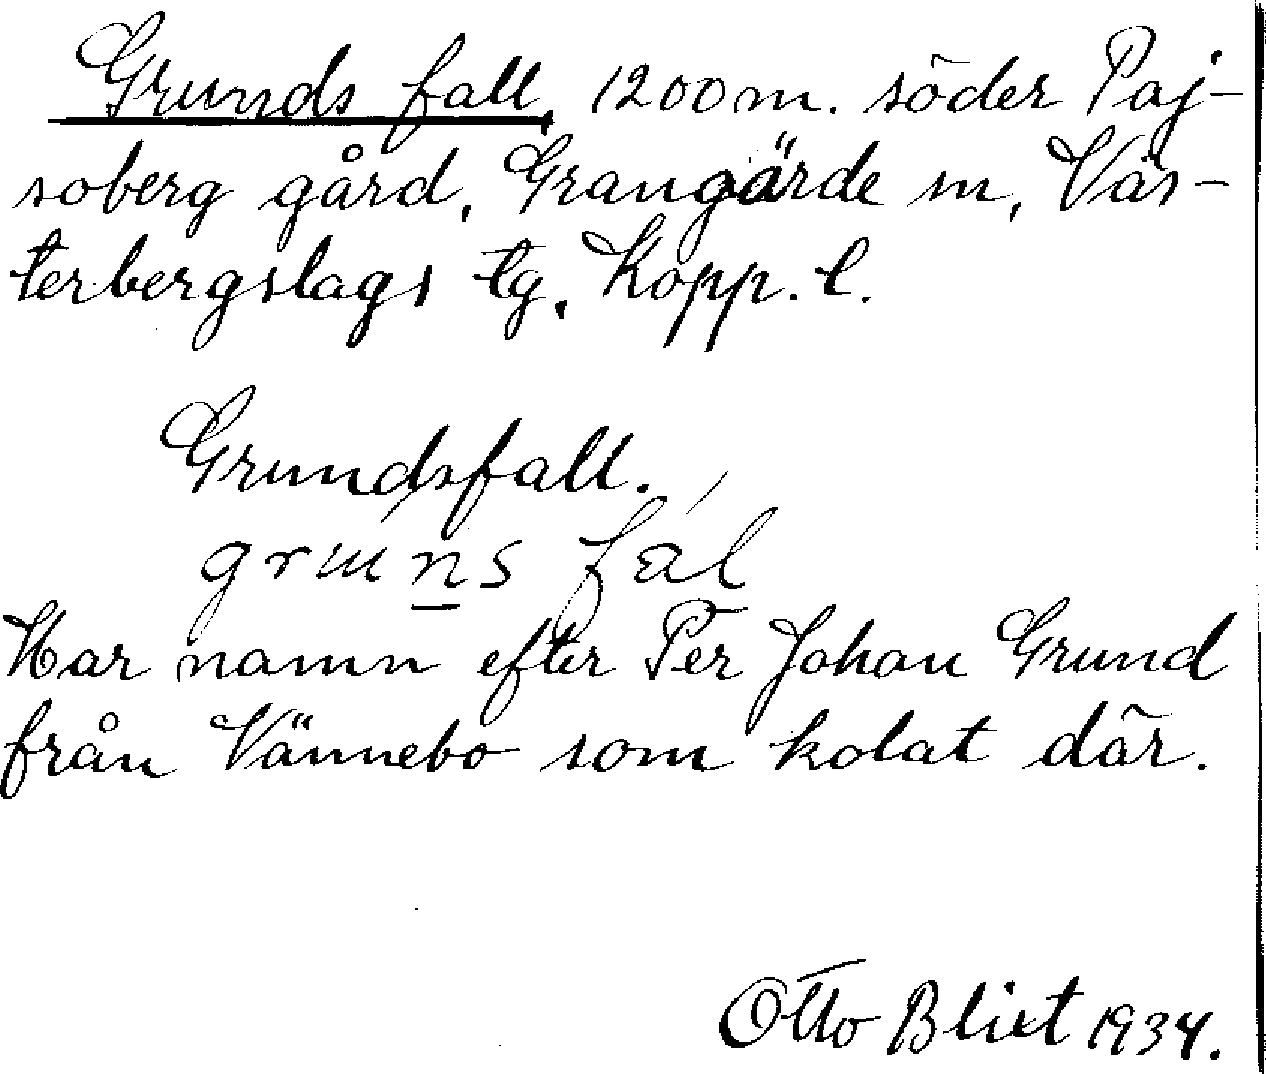 Grunds fall, 1200 m. söder Paj-
soberg gård, Grangärde sn, Väs-
terbergslags tg, Kopp. l.
Grundsfall.
Har namn efter Per Johan Grund
från Vännebo som kolat där.
Otto Blixt 1934.